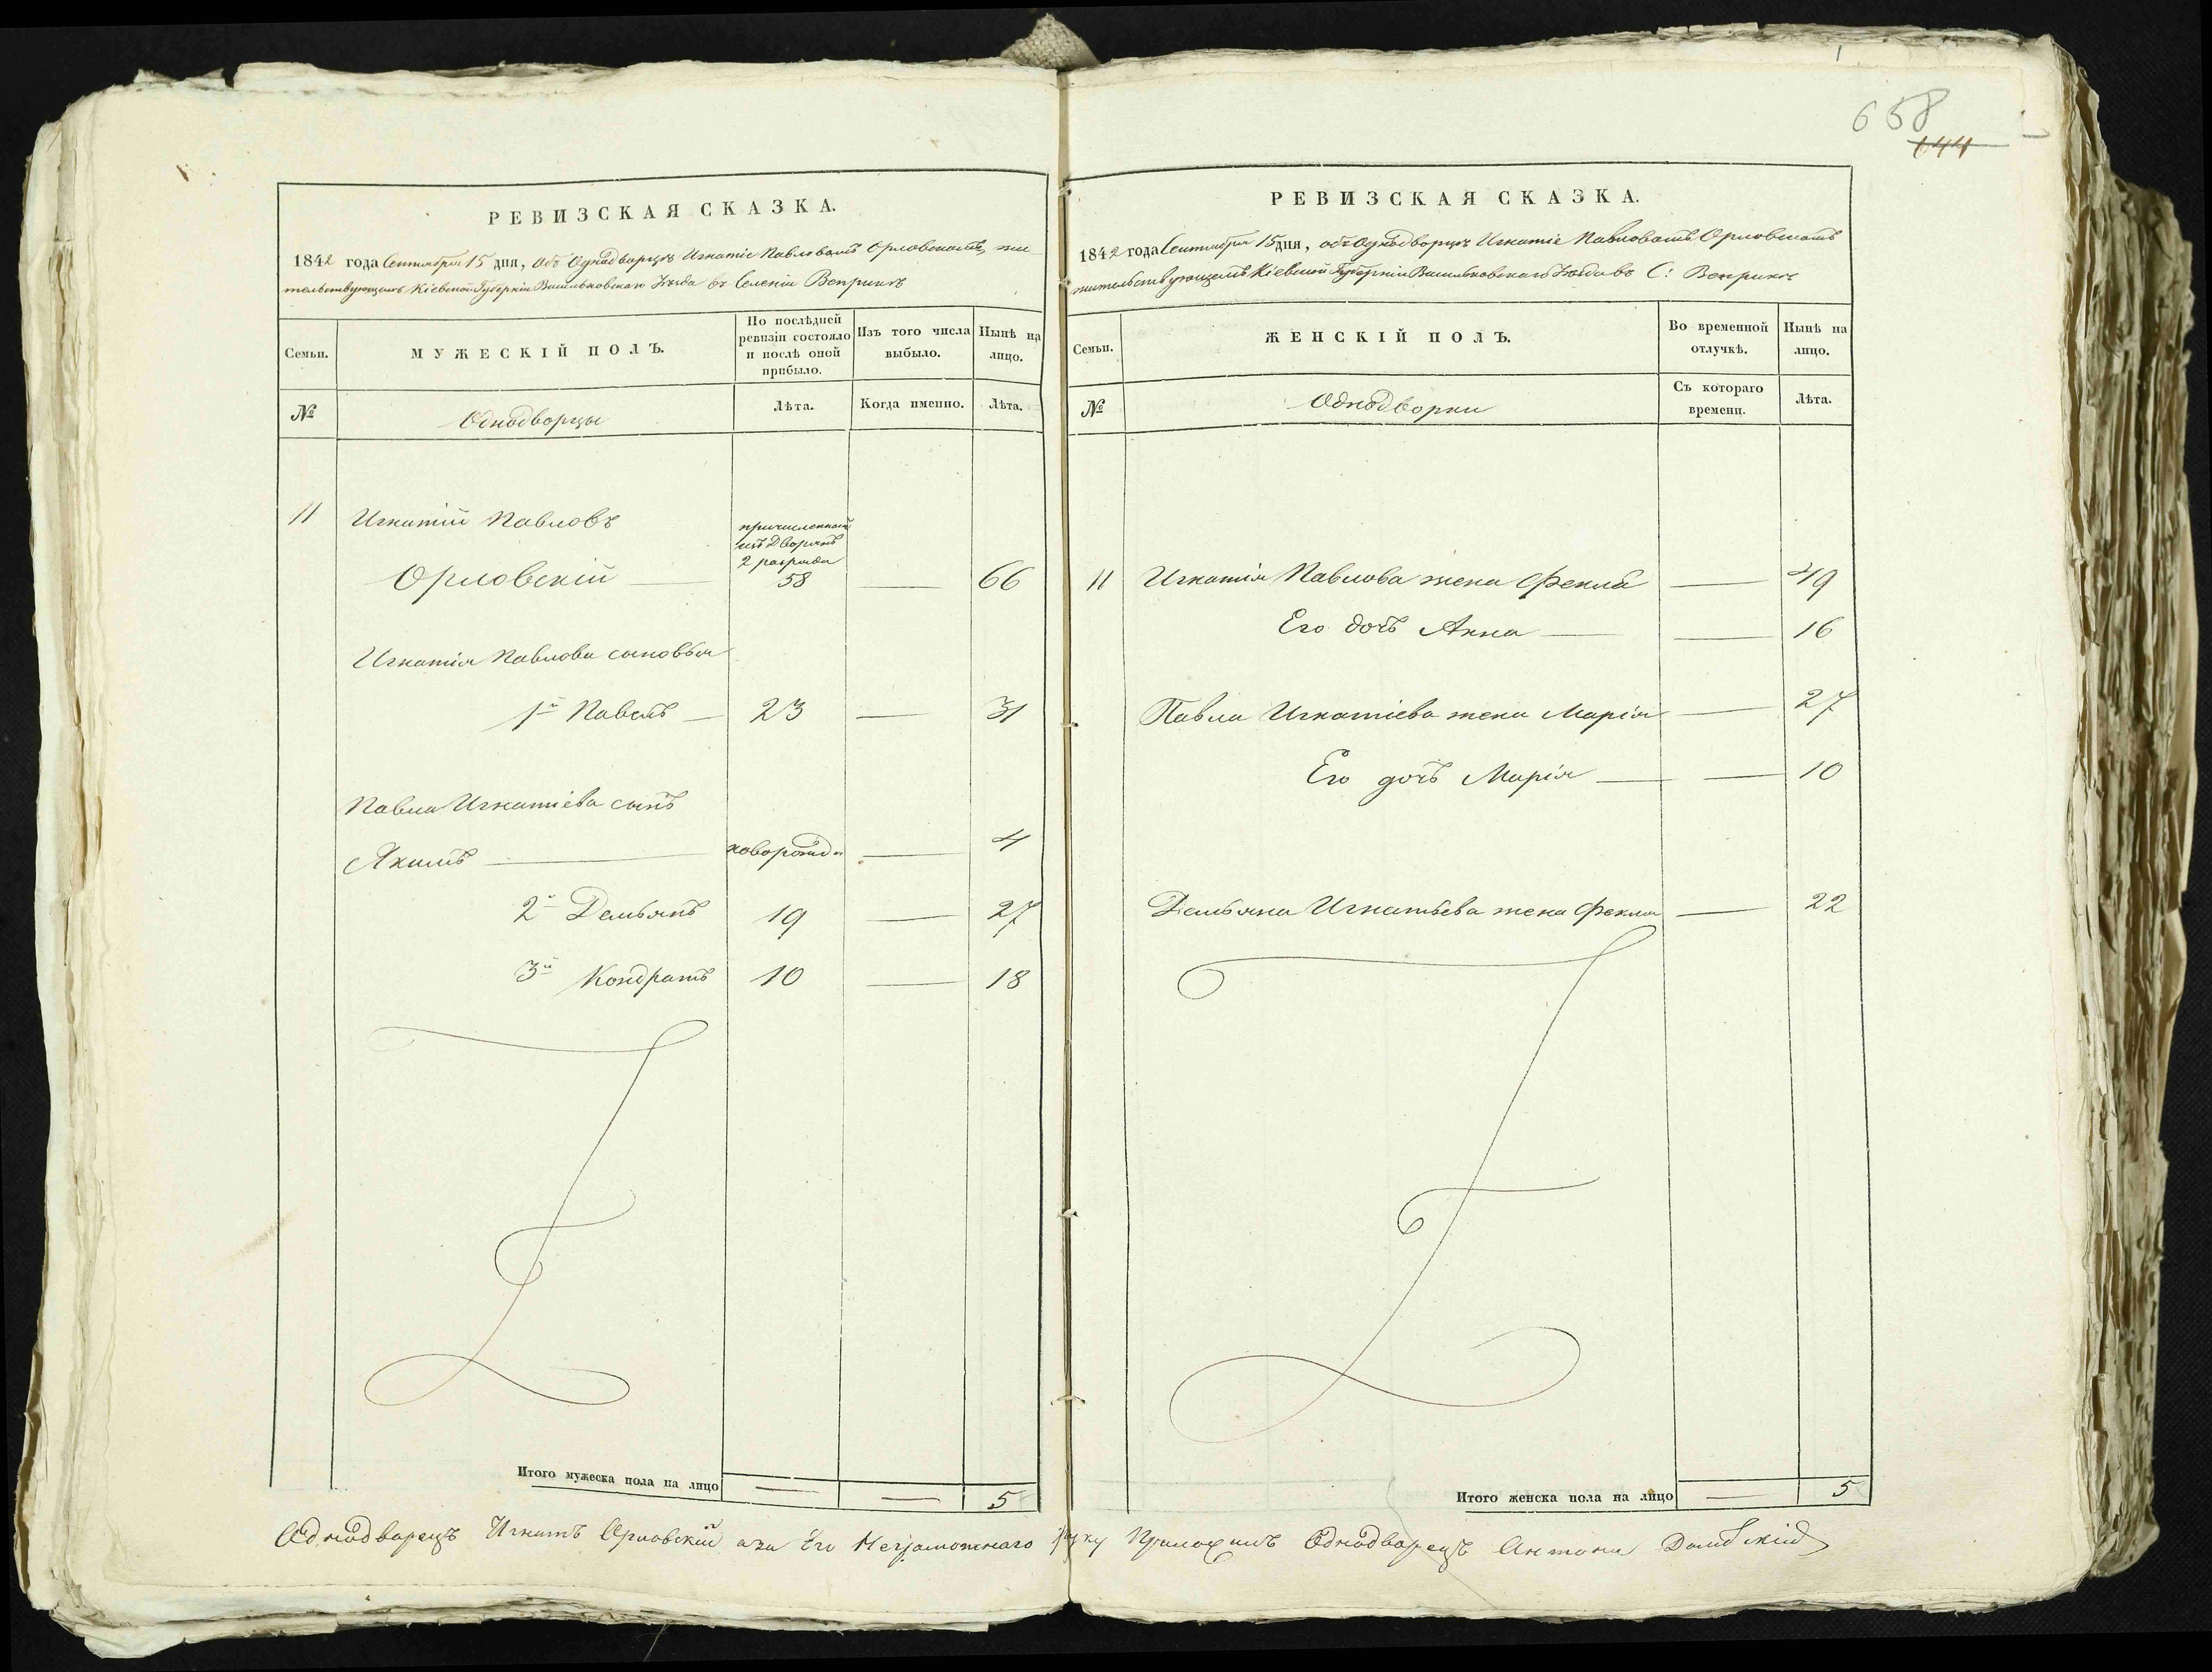 658
644
РЕВИЗСКАЯ СКАЗКА.
1842 года Сентября 15 дня, Объ Однодворцѣ Игнатіе Павловомъ Орловскомъ, жи
тельствующемъ Кіевской Губерніи Васильковскаго Уѣзда въ Селеніи Веприкѣ
Семьи.
МУЖЕСКІЙ ПОЛЪ.
По послѣдней ревизіи состояло и послѣ оной прибыло.
Изъ того числа выбыло.
Нынѣ на лицо.
№
Однодворцы
Лѣта.
Когда именно.
Лѣта.
11 Игнатій Павловъ
причисленный
изъ Дворянъ
2 разряда
Орловскій — 58 — 66
Игнатія Павлова сыновья
1й Павелъ — 23 — 31
Павла Игнатіева сынъ
Якимъ — новорожд — 4
2й Демьянъ 19 — 27
3й Кондратъ 10 — 18
Итого мужеска пола на лицо — — 5
РЕВИЗСКАЯ СКАЗКА.
1842 года Сентября 15 дня, объ Однодворцѣ Игнатіе Павловомъ Орловскомъ
жительствующемъ Кіевской Губерніи Васильковскаго Уѣзда въ С: Веприкѣ
Семьи.
ЖЕНСКІЙ ПОЛЪ.
Во временной отлучкѣ.
Нынѣ на лицо.
№
Однодворки
Съ котораго времени.
Лѣта.
11 Игнатія Павлова жена Фекла — 49
Его дочь Анна — — 16
Павла Игнатіева жена Марія — 27
Его дочь Марія — — 10
Демьяна Игнатьева жена Фекла — 22
Итого женска пола на лицо — 5
Однодворецъ Игнатъ Орловскій а за Его Неграмотнаго руку Приложилъ Однодворецъ Антонъ